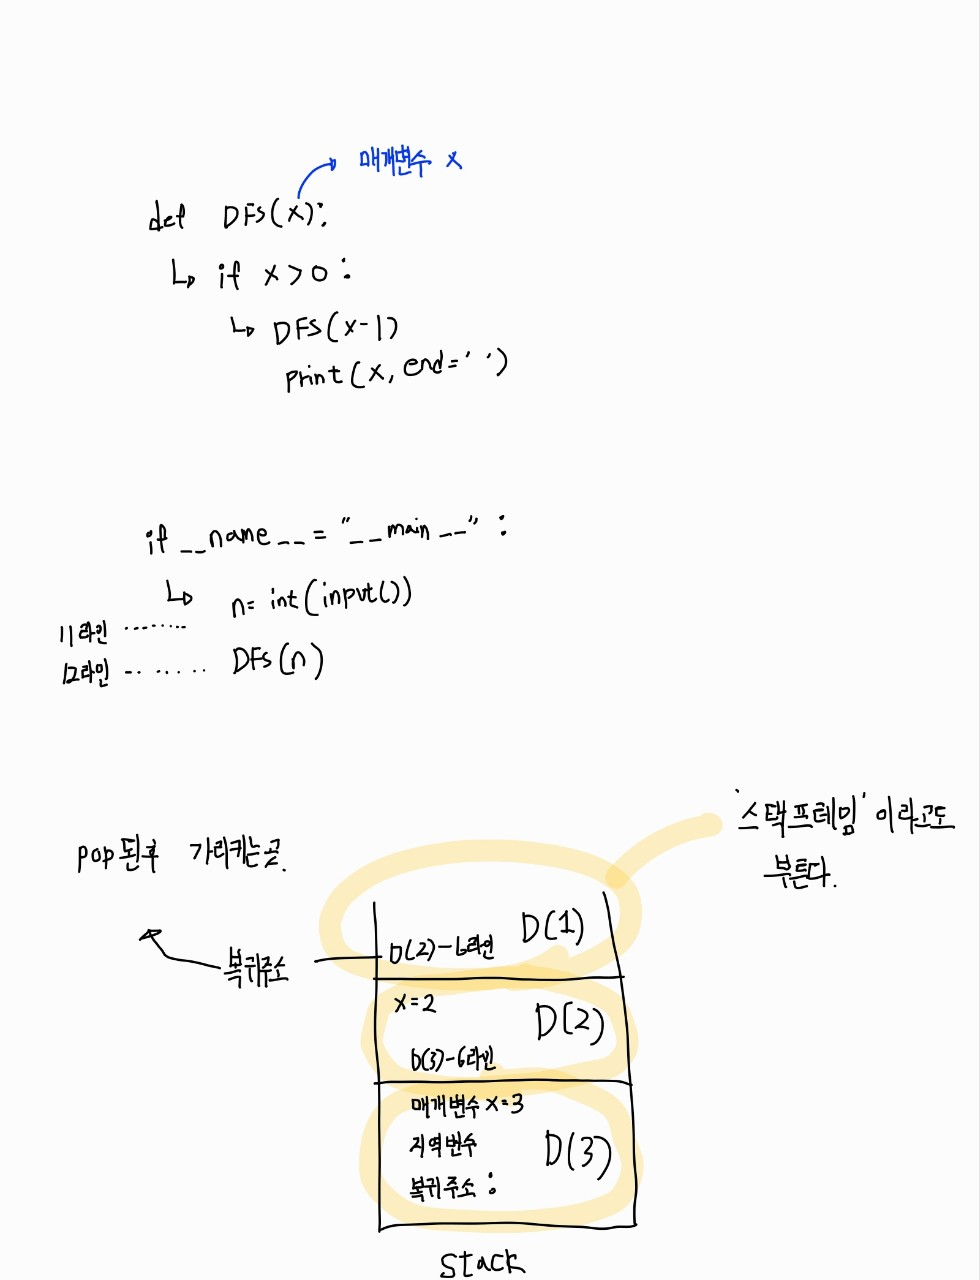 매개변수 x
def DFS(x):
↳ if x>0:
↳ DFS(x-1)
print(x, end=' ')
if __name__ = "__main__":
↳ n= int(input())
11라인 ........
12라인 ....... DFS(n)
'스택프레임'이라고도
부른다.
pop된후 가리키는곳.
복귀주소
D(2)-6라인 D(1)
x=2 D(2)
D(3)-6라인
매개변수 x=3
지역변수 D(3)
복귀주소 :
Stack